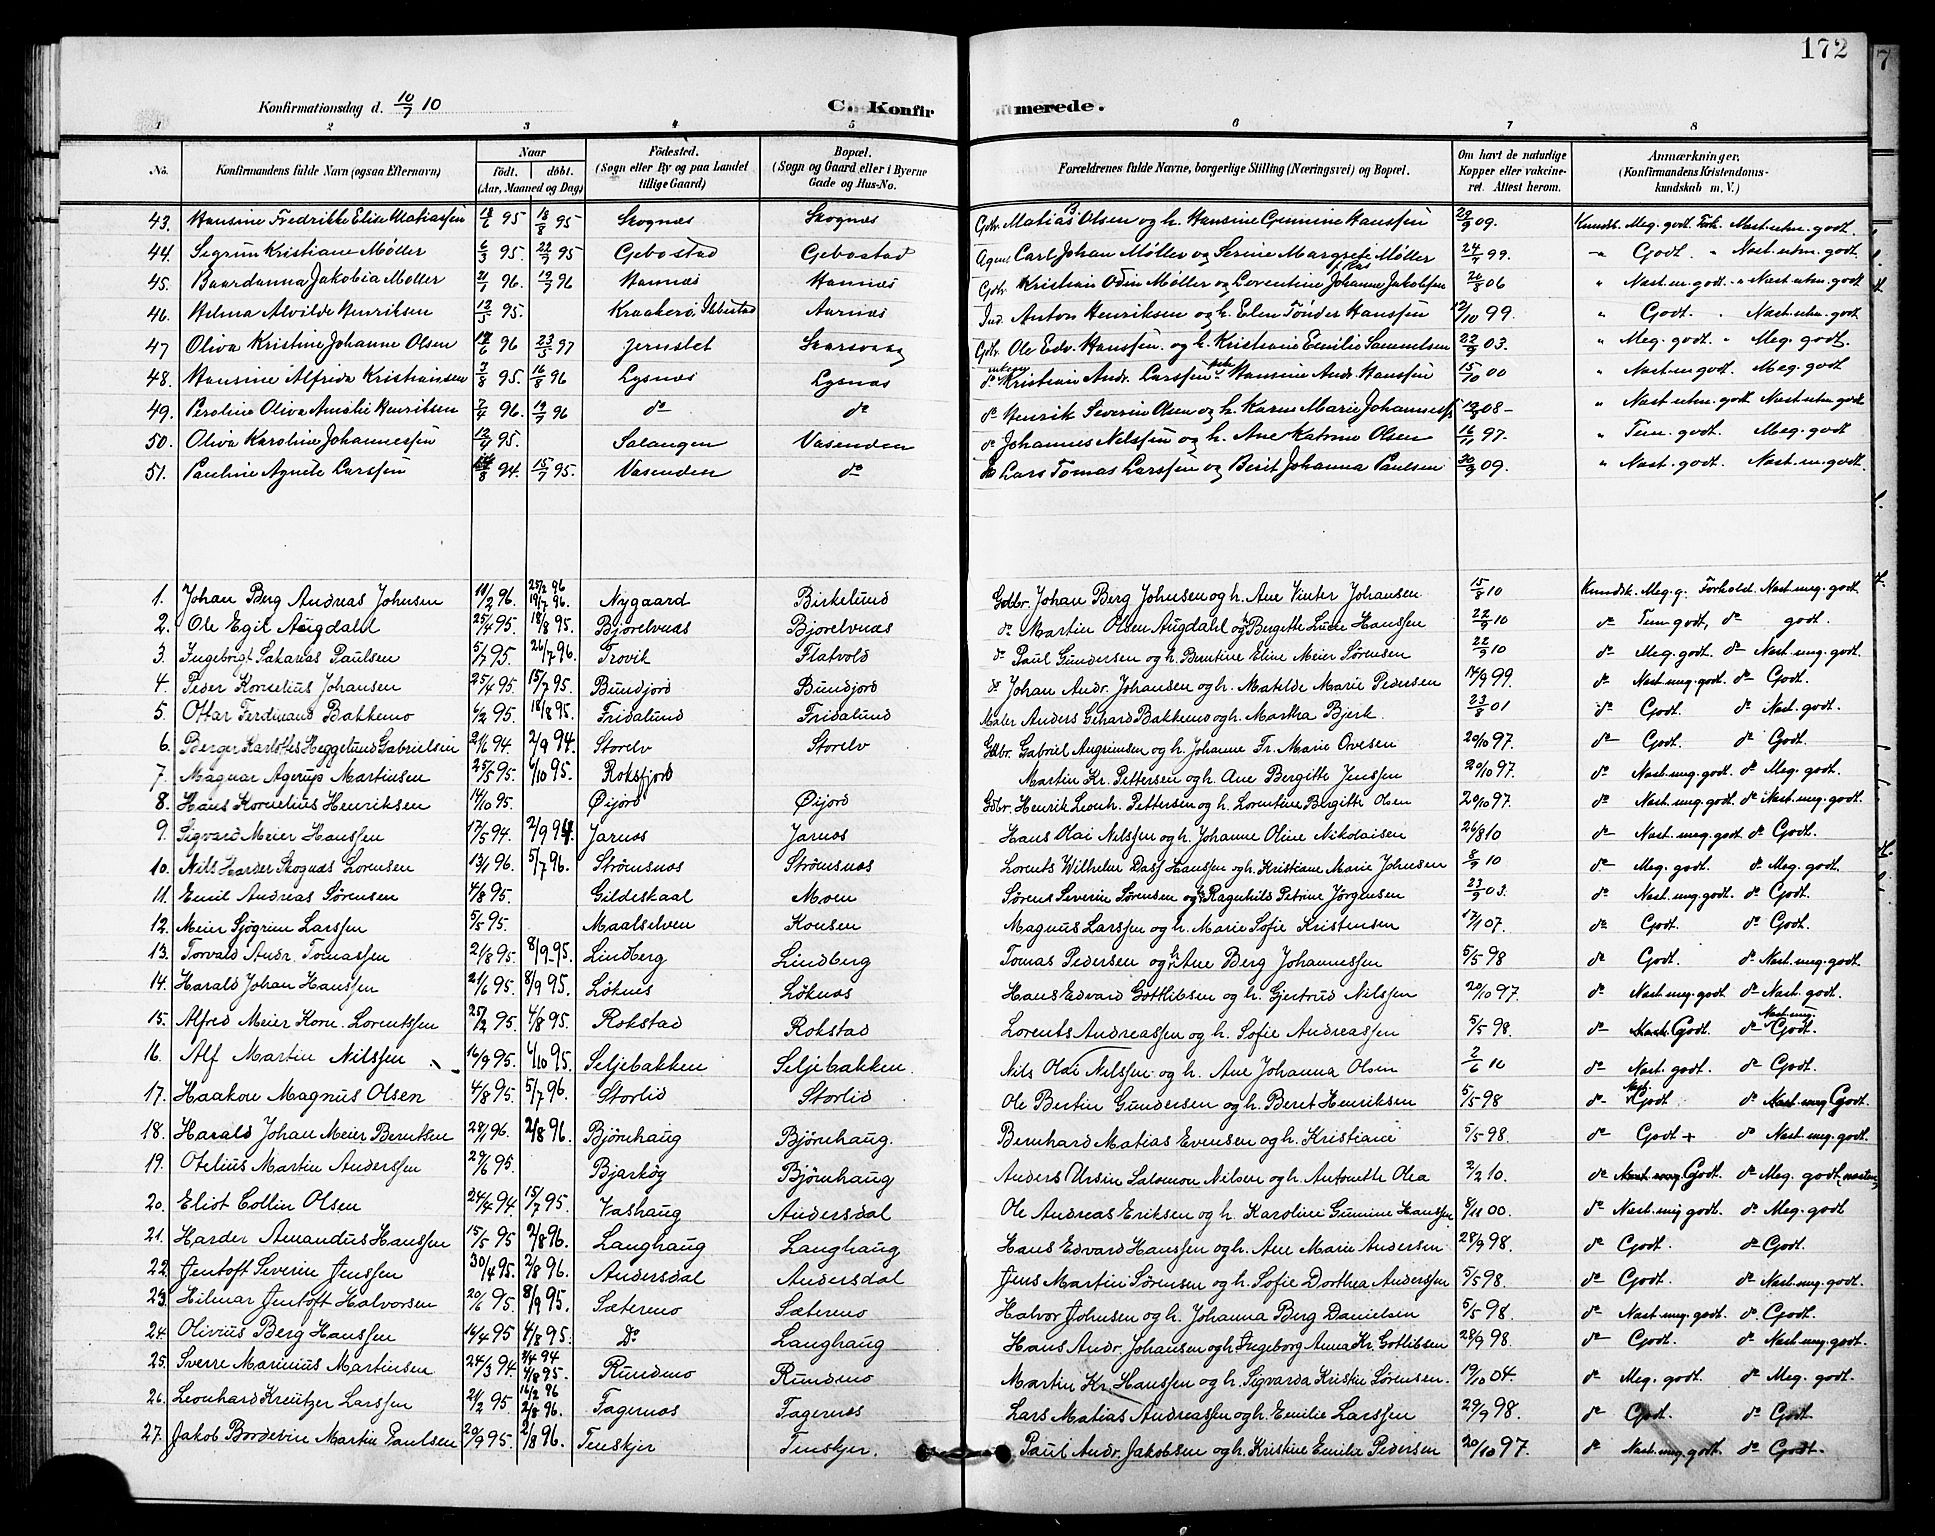 172
Konfirmationsdag d. 10/7 10
C. Konfirmerede.
1 2 3 4 5 6 7 8
No. Konfirmandens fulde Navn (ogsaa Efternavn) Naar Födt. döbt. (Aar, Maaned og Dag) Födested. (Sogn eller By og paa Landet tillige Gaard) Bopæl. (Sogn og Gaard eller i Byerne Gade og Hus-No. Forældrenes fulde Navne, borgerlige Stilling (Næringsvei) og Bopæl. Om havt de naturlige Kopper eller vakcineret. Attest herom. Anmærkninger. (Konfirmandens Kristendomskundskab m. V.)
43. Hansine Fredrikke Elise Matiassen 18/6 95 18/8 95 Skognæs Skognæs Gbr. Matias B. Olsen og h. Hansine Hanssen 23/9 09. Kundsk. Meg. godt. Forh. Næst. udm. godt.
44. Sigrun Kristiane Møller 6/3 95. 22/7 95 Gebostad Gebostad Agent Carl Johan Møller og Serine Margrete Møller 24/7 99. " Godt. " Næst. udm. godt.
45. Baardanna Jakobia Møller 21/1 96. 19/7 96 Hannæs Hannæs Gbr. Kristian Odin Møller og Lorentine Johanne Jakobsen 26/8 06 " Næst. m. godt. " Næst. udm. godt
46. Helma Alvilde Henriksen 12/5 95. Kraakerø, Ibbestad Aarnæs Ind. Anton Henriksen og h. Elen Tønder Hanssen 12/10 99. " Godt " Næst. udm. godt
47 Oliva Kristine Johanne Olsen 18/6 96 23/5 97 Jernslet Skarsvaag Gbr. Ole Edv. Hanssen. og h. Kristiane Emilie Samuelsen 22/9 03. " Meg. godt. " Meg. godt.
48. Hansine Alfrida Kristiansen 3/8 95. 16/8 96 Lysnæs Lysnæs do Kristian Andr. Larssen Hansine Andr. Hanssen 15/10 00 " Næst. m. godt. Meg. godt
49. Peroline Oliva Amalie Henriksen 7/4 96. 19/7 96 do do do Henrik Severin Olsen og h. Karen Marie Johanness 08- " Næst. udm. godt. Næst. udm. godt
50. Oliva Karoline Johannessen 12/4 95. Salangen Vasenden do Johannes Nilssen og h. Ane Katrine Olsen 16/7 97. " Tem. godt. Meg. godt
51. Pauline Agnete Larssen 14/8 94. 15/7 95. Vasenden do do Lars Tomas Larssen og Berit Johanna Paulsen 30/9 09. " Næst. godt. Næst. m. godt.
1. Johan Berg Andreas Johnsen 10/2 96. 25/2 96 19/7 96. Nygaard Birkelund Gdbr. Johan Berg Johnsen og h. Ane Vinter Johansen 15/8 10 Kundsk. Meg. g. Forhold Næst. meg. godt.
2. Ole Egil Augdahl 25/4 95. 18/8 95. Bjorelvnæs Bjorelvnæs do Martin Olsen Augdahl og h. Bergitte Lucie Hanssen 22/9 10 do Tem godt, do godt.
3. Ingebrigt Sakarias Paulsen 5/7 95. 26/7 96. Trovik Flatvold do Paul Gundersen og h. Berntine Eline Meier Sørensen 22/9 10 do Meg. godt. do Næst. meg. godt.
4. Peder Kornelius Johansen 25/4 95. 15/7 95. Bundjord Bundjord do Johan Andr. Johansen og h. Matilde Marie Pedersen 14/9 99 do Næst. meg. godt do Godt.
5. Ottar Ferdinand Bakkemo 6/2 95. 18/8 95. Fridalund Fridalund Maler Anders Gerhard Bakkemo og h. Martha Bjerk. 23/8 01 do Godt. do Næst. godt.
6. Berger Karlottes Heggelund Gabrielsen 21/6 94. 2/9 94. Storelv Storelv Gdbr. Gabriel Angrimsen og h. Johanne Fr. Marie Ovesen 20/10 97. do Godt. do Godt.
7. Magnar Agerup Martinsen 25/5 95. 6/10 95. Roksfjord Martin Kr. Pettersen og h. Ane Bergitte Jenssen 20/10 97. do Næst. meg. godt. do Meg. godt.
8. Hans Kornelius Henriksen 14/10 95. Øijord Øijord Gdbr. Henrik Leonh. Pettersen og h. Lorentine Bergitte Olsen 20/10 97. do Næst. meg. godt do Næst. meg. godt.
9. Sigvard Meier Hanssen 17/5 94. 2/9 94. Jarnæs Jarnæs Hans Olai Nilssen og h. Johanne Oline Nikolaisen 26/8 10 do Næst. meg. godt do Godt.
10. Nils Harder Skognæs Lorensen 13/1 96. 5/7 96. Strömsnæs Strömsnæs Lorents Wilhelm Dass Hanssen og h. Kristiane Marie Johnsen 8/9 10 do Meg. godt. do Meg. godt.
11. Emil Andreas Sørensen 4/8 95. Gildeskaal Moen Sørens Severin Sørensen og h. Ragnhild Petrine Jørgensen 23/9 03. do Næst. meg. godt. do Godt.
12. Meier Sjøgrim Larssen 5/5 95. Maalselven Konsen Magnus Larssen og h. Marie Sofie Kristensen 17/1 07. do Godt do Godt.
13. Torvald Andr. Tomassen 21/8 95. 8/9 95. Lindberg Lindberg Tomas Pedersen og h. Ane Berg Johannessen 5/5 98 do Godt. do Næst. meg. godt.
14. Harald Johan Hanssen 21/6 95. 8/9 95. Løknes Løknæs Hans Edvard Gottlibsen og h. Gjertrud Nilssen 20/10 97. do Næst. meg. godt do Næst. godt.
15. Alfred Meier Korn. Lorentssen 25/2 95. 4/8 95. Rokstad Rokstad Lorents Andreassen og h. Sofie Andreassen 5/5 98. do Godt. do Næst. meg. Godt.
16. Alf Martin Nilssen 16/9 95. 4/10 95. Seljebakken Seljebakken. Nils Olai Nilssen og h. Ane Johanna Olsen 2/6 10 do Næst. godt. do Godt.
17. Haakon Magnus Olsen 4/8 95. 5/7 96. Storlid Storlid Ole Bertin Gundersen og h. Beret Henriksen 5/5 98 do Næst. Godt do Godt.
18. Harald Johan Meier Berntsen 28/1 96. 2/8 96. Björnhaug Björnhaug. Bernhard Matias Evensen og h. Kristiane 5/5 98. do Godt + do Næst. meg. godt.
19. Otelius Martin Anderssen 29/6 95. Bjarköy Björnhaug Anders Ursin Salomon Nilsen og h. Antonette Olea 2/2 10. do Godt. do Meg. godt (næsten)
20. Eliot Collin Olsen 24/4 94. 15/7 95. Vashaug Andersdal Ole Andreas Eriksen og h. Karoline Gurine Hanssen 8/11 00. do Næst. meg godt. do Meg. godt
21. Harder Amandus Hanssen 15/5 95 2/8 96. Langhaug Langhaug Hans Edvard Hanssen og h. Ane Marie Andersen 28/9 98. do Godt. do Godt.
22. Jentoft Severin Jenssen 30/4 95. 2/8 96. Andersdal Andersdal Jens Martin Sørensen og h. Sofie Dorthea Anderssen 5/5 98. do Godt. do Næst. meg. godt.
23. Hilmar Jentoft Halvorsen 20/6 95. 8/9 95. Sætermo Sætermo Halvor Johnsen og h. Johanna Berg Danielsen 5/5 98. do Næst. meg. godt. do Godt.
24. Olivius Berg Hanssen 16/4 95 4/8 95. Do Langhaug Hans Andr. Johansen og h. Ingeborg Anna Kr. Gotlibsen 28/9 98. do Godt. do Næst. meg. godt.
25. Sverre Marinius Martinsen 24/3 94. 2/4 94 4/8 95. Rundmo Rundmo Martin Kr. Hanssen og h. Sigvarda Kristie Sørensen. 19/10 04. do Meg. godt. do Meg. godt.
26. Leonhard Kreutzer Larssen 21/2 95 16/2 96 2/8 96. Fagernæs Fagernæs Lars Matias Andreassen og h. Emilie Larssen 29/9 98. do Godt. do Godt
27. Jakob Bordevin Martin Paulsen 20/9 95. 2/8 96. Tenskjer Tenskjer. Paul Andr. Jakobsen og h. Kristine Emilie Pedersen 20/10 97. do Næst. meg. godt. do Godt.